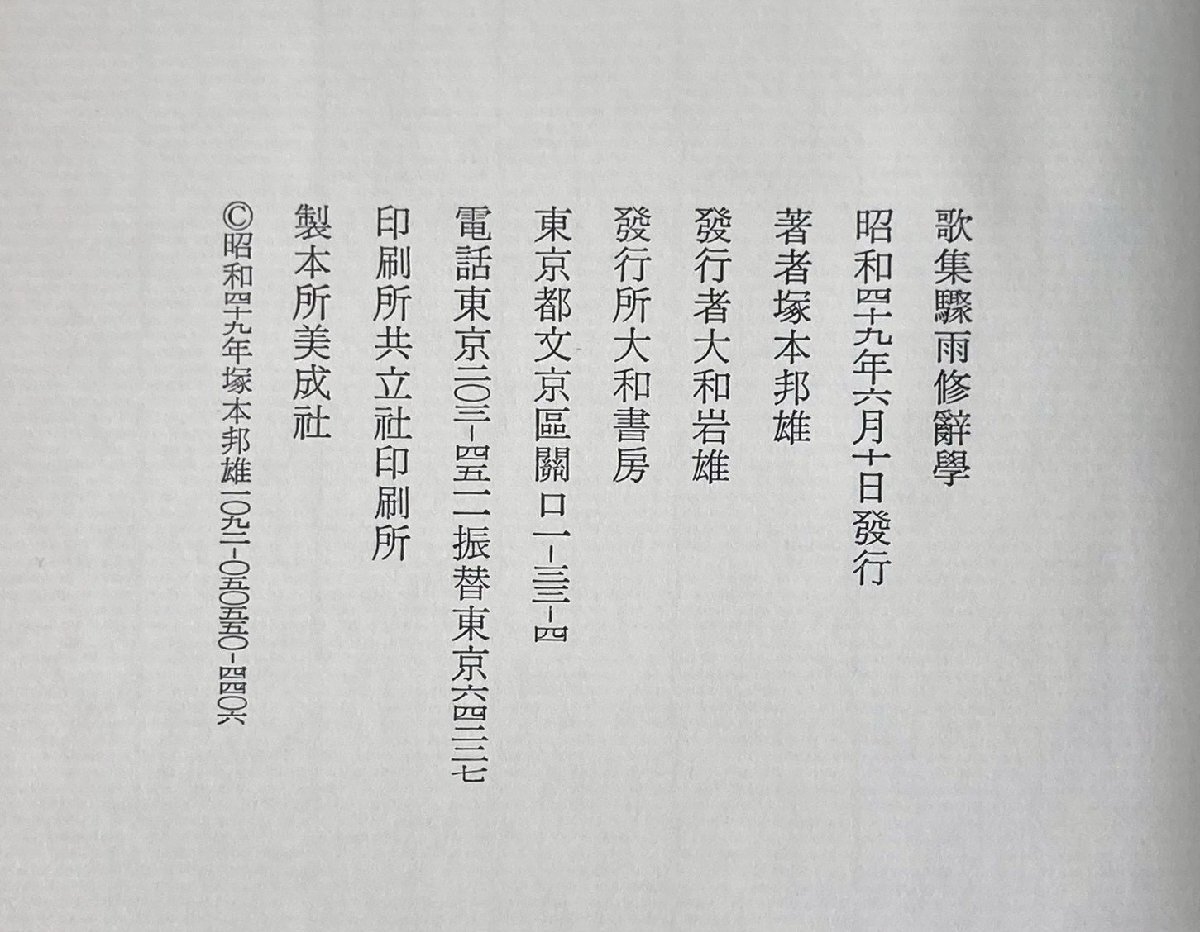 歌集驟雨修辭學
昭和四十九年六月十日發行
著者塚本邦雄
發行者大和岩雄
發行所大和書房
東京都文京區關口一-三三-四
電話東京二〇三-四五一一振替東京六四二二七
印刷所共立社印刷所
製本所美成社
©昭和四十九年塚本邦雄一〇九二-〇五〇五五〇-四四〇六